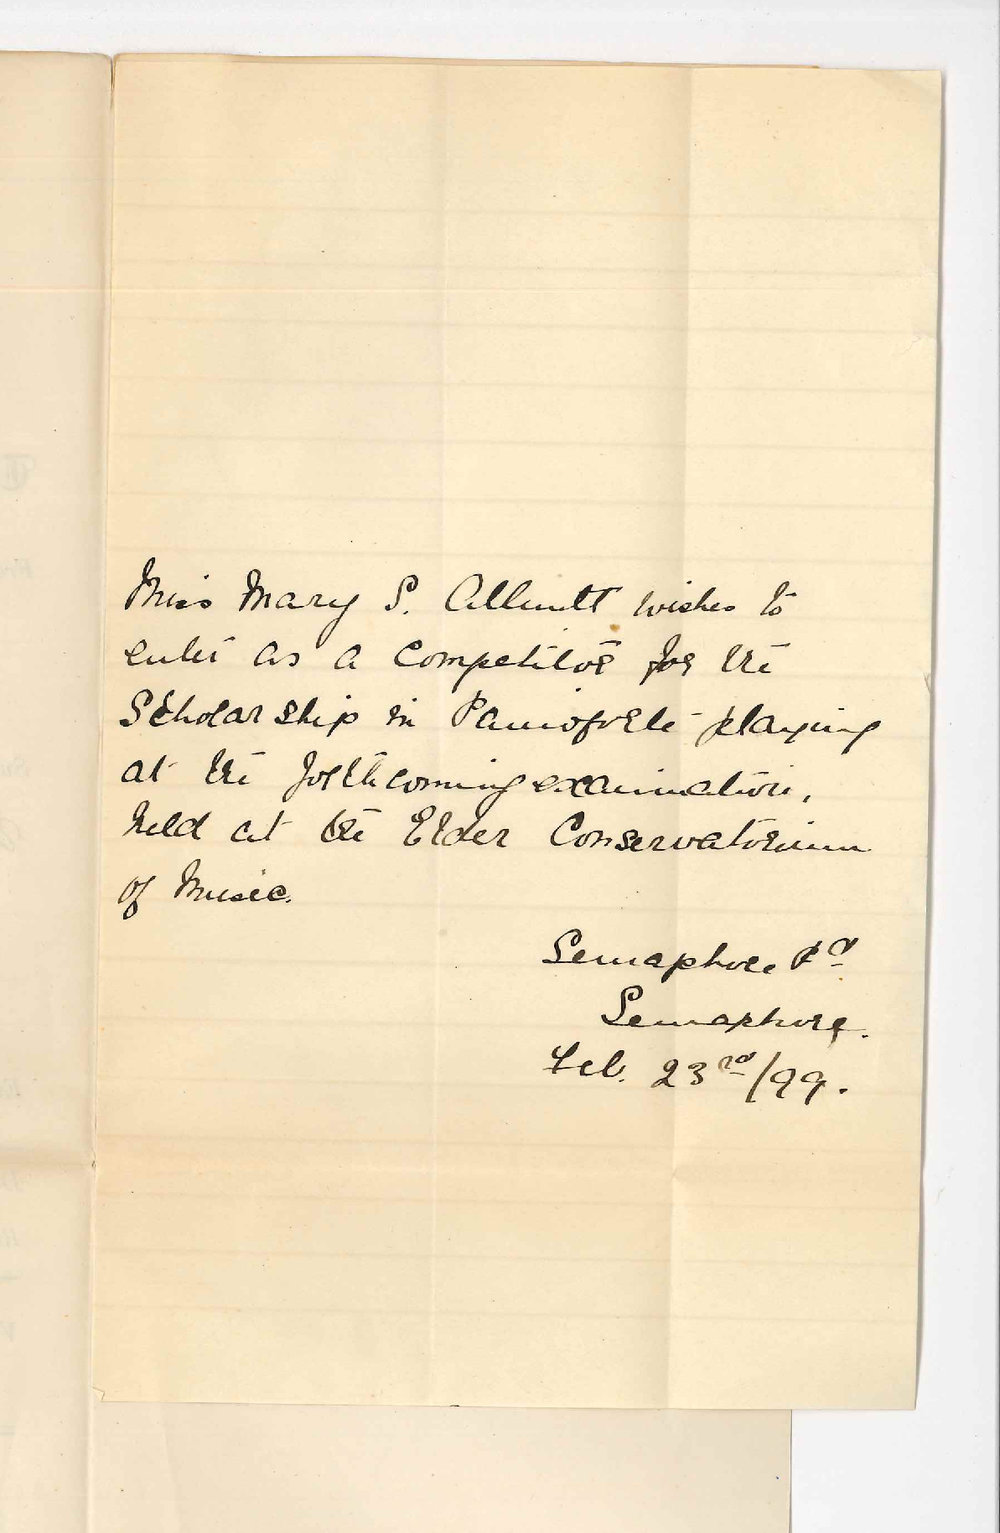 Miss Mary S. Allnutt wishes to
enter as a competitor for the
Scholarship in Pianoforte playing
at the forthcoming examination,
held at the Elder Conservatorium
of Music.
Semaphore Rd
Semaphore.
Feb. 23rd/99.